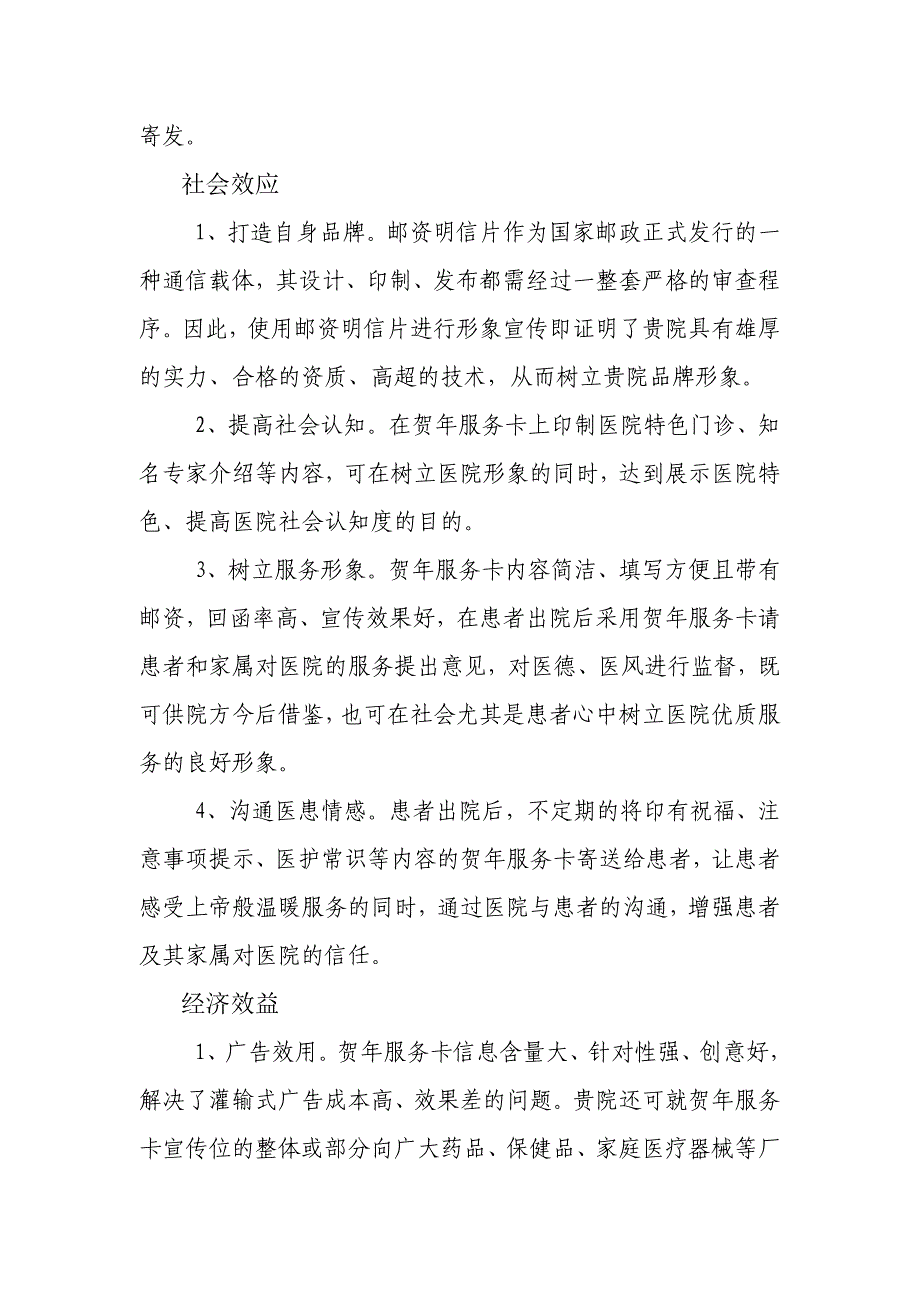 寄发。
社会效应
1、打造自身品牌。邮资明信片作为国家邮政正式发行的一
种通信载体，其设计、印制、发布都需经过一整套严格的审查程
序。因此，使用邮资明信片进行形象宣传即证明了贵院具有雄厚
的实力、合格的资质、高超的技术，从而树立贵院品牌形象。
2、提高社会认知。在贺年服务卡上印制医院特色门诊、知
名专家介绍等内容，可在树立医院形象的同时，达到展示医院特
色、提高医院社会认知度的目的。
3、树立服务形象。贺年服务卡内容简洁、填写方便且带有
邮资，回函率高、宣传效果好，在患者出院后采用贺年服务卡请
患者和家属对医院的服务提出意见，对医德、医风进行监督，既
可供院方今后借鉴，也可在社会尤其是患者心中树立医院优质服
务的良好形象。
4、沟通医患情感。患者出院后，不定期的将印有祝福、注
意事项提示、医护常识等内容的贺年服务卡寄送给患者，让患者
感受上帝般温暖服务的同时，通过医院与患者的沟通，增强患者
及其家属对医院的信任。
经济效益
1、广告效用。贺年服务卡信息含量大、针对性强、创意好，
解决了灌输式广告成本高、效果差的问题。贵院还可就贺年服务
卡宣传位的整体或部分向广大药品、保健品、家庭医疗器械等厂